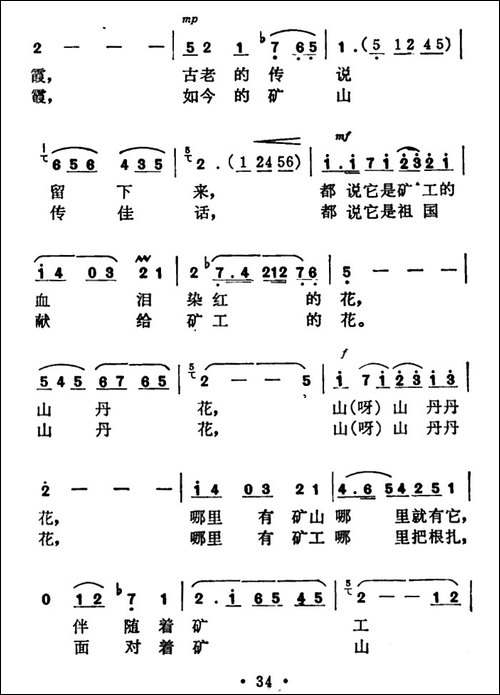 mp
2 — — — | 52 1 ♭7 65 | 1. (5 1245) |
霞， 古老的传说
霞， 如今的矿山
656 435 | 2. (1 2456) | mf i.i 7i 2321 |
留下来， 都说它是矿工的
传佳话， 都说它是祖国
i4 03 21 | 2 ♭7.4 212 76 | 5 — — — |
血泪染红的花，
献给矿工的花。
545 67 65 | 2 — — 5 | f i 7i 23 i3 |
山丹花， 山(呀)山丹丹
山丹花， 山(呀)山丹丹
2 — — — | i4 03 21 | 4.65 4251 |
花， 哪里有矿山哪里就有它，
花， 哪里有矿工哪里把根扎，
0 12 ♭7 1 | 2.i 65 45 | 2 — — 12 |
伴随着矿工
面对着矿山
· 34 ·